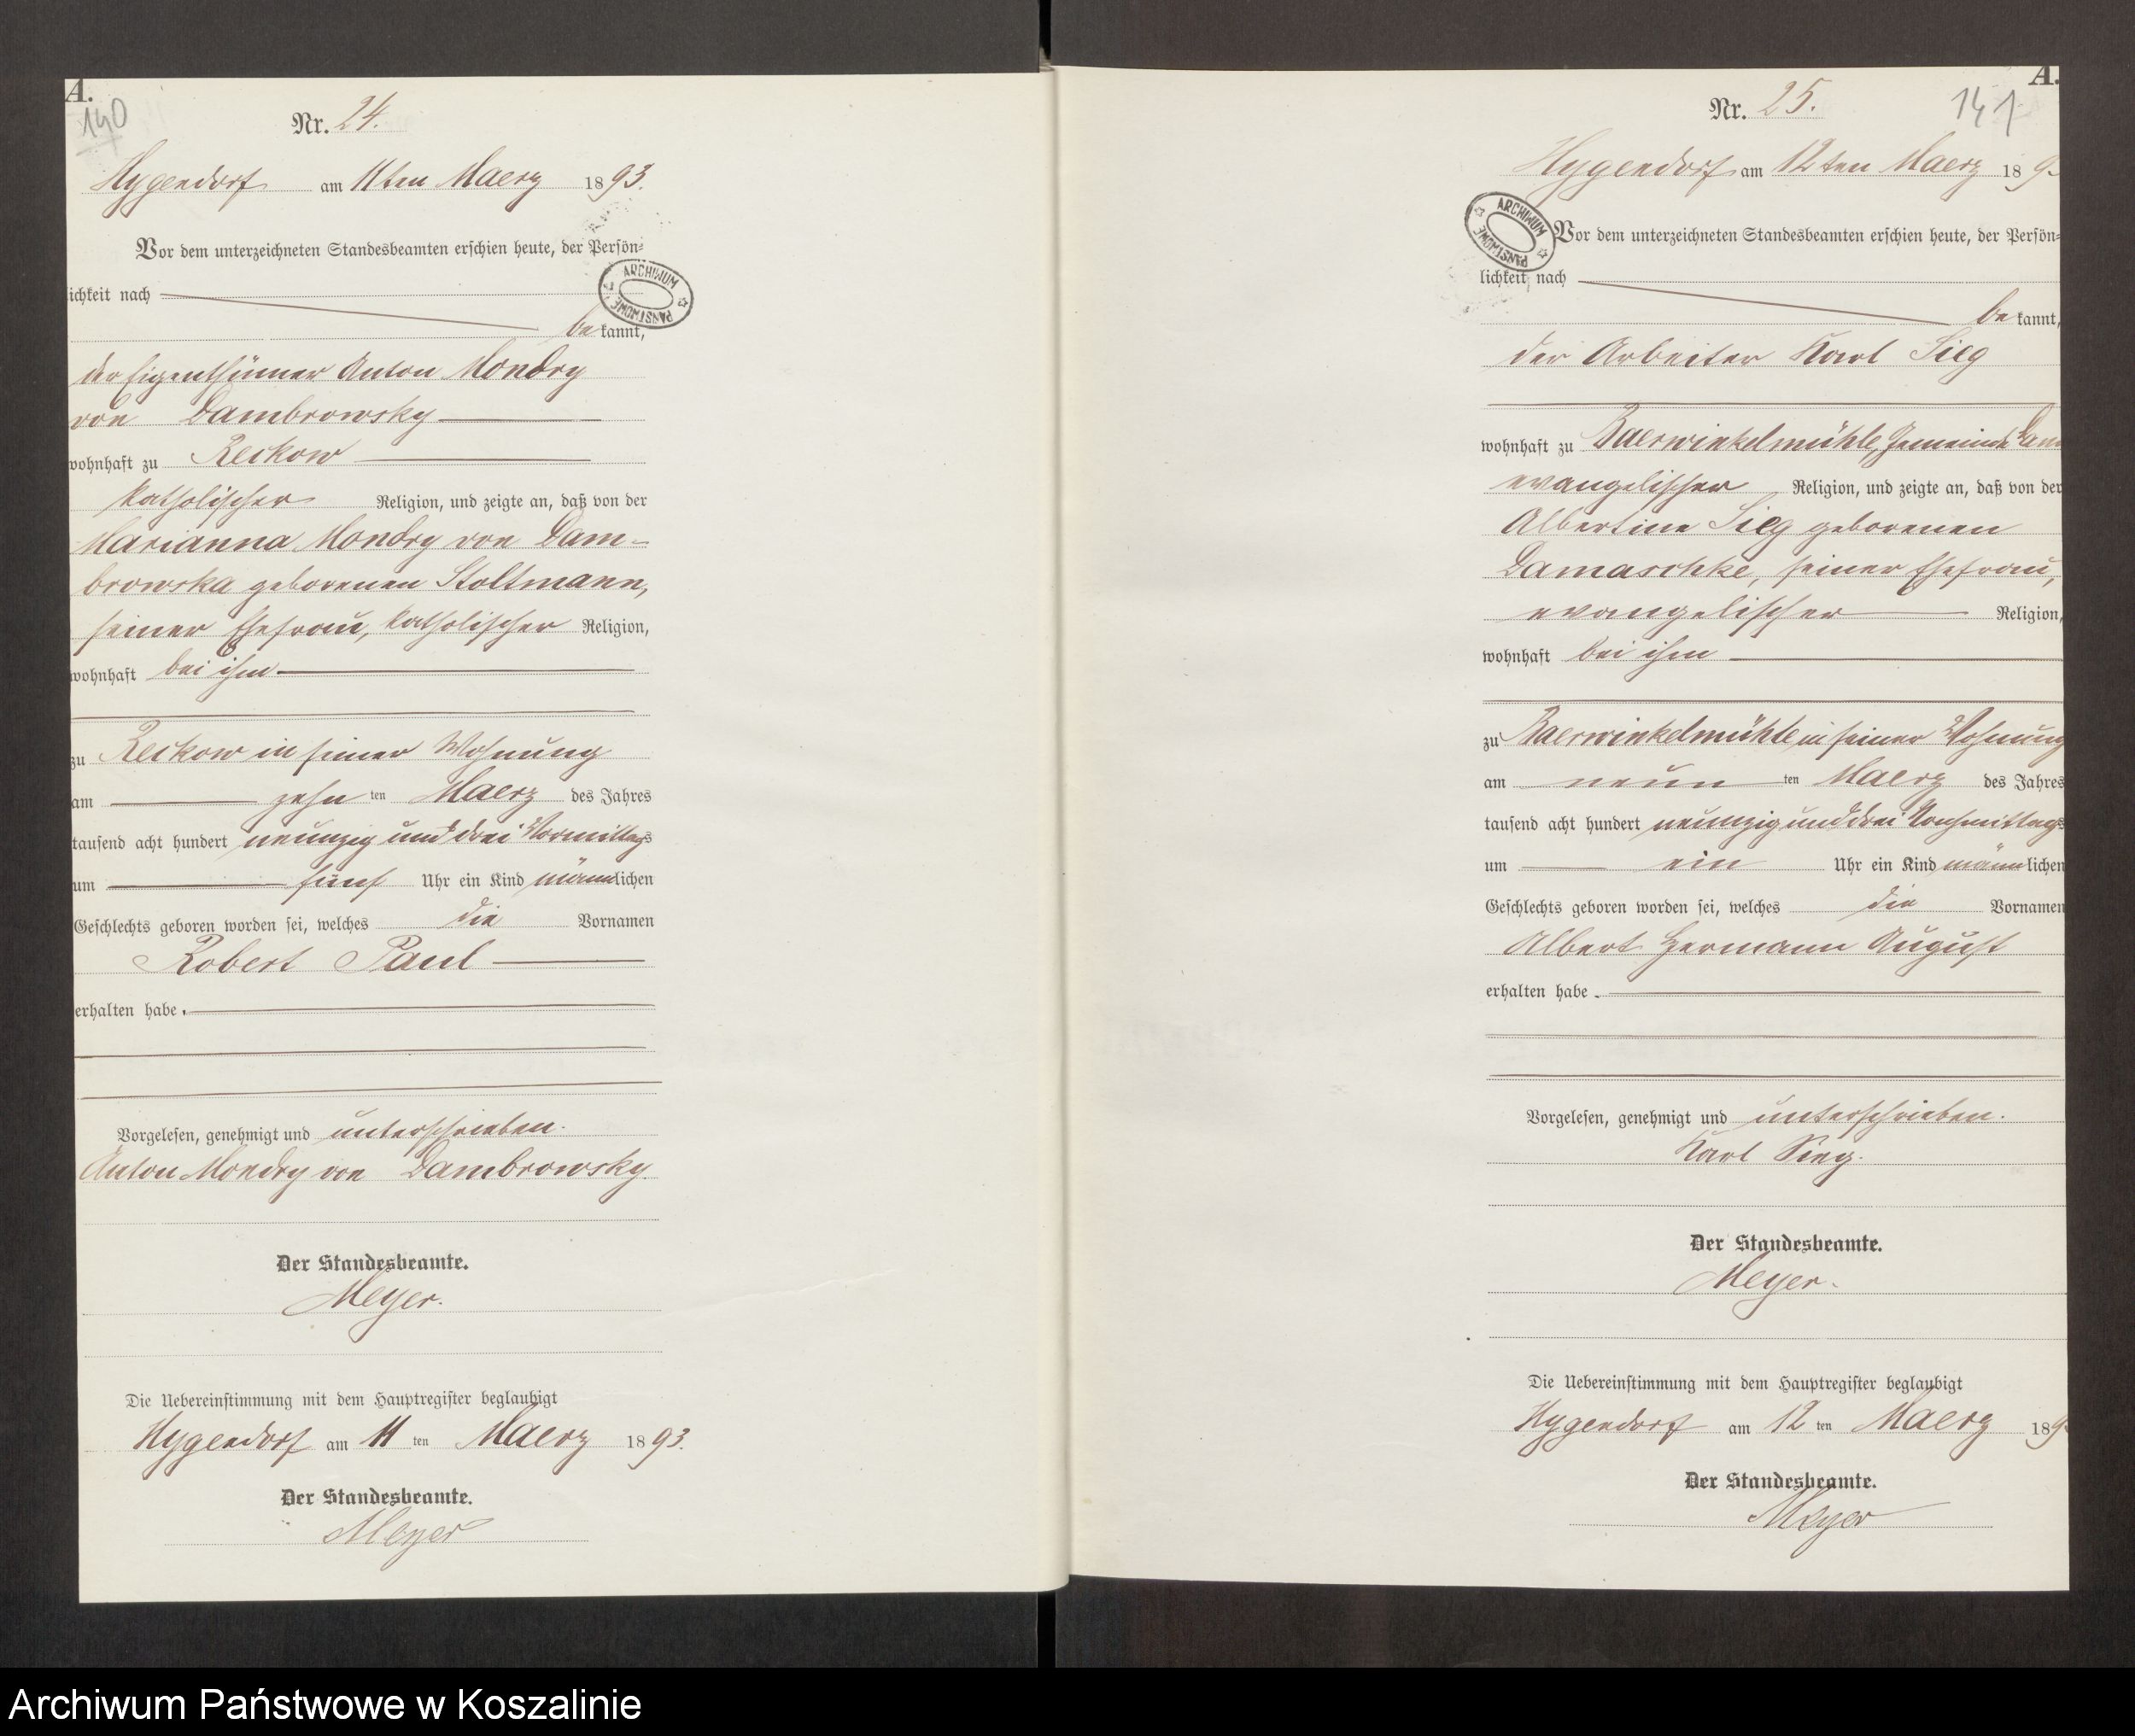 A.
140
Nr. 24.
Hygendorf am 11ten Maerz 1893.
Vor dem unterzeichneten Standesbeamten erschien heute, der Persön-
lichkeit nach
bekannt,
der Eigenthümer Anton Mondry
von Dambrowsky
wohnhaft zu Reckow
katholischer Religion, und zeigte an, daß von der
Marianna Mondry von Dam-
browska geborenen Stoltmann,
seiner Ehefrau, katholischer Religion,
wohnhaft bei ihm
zu Reckow in seiner Wohnung
am zehn ten Maerz des Jahres
tausend acht hundert neunzig und drei Vormittags
um fünf Uhr ein Kind männlichen
Geschlechts geboren worden sei, welches die Vornamen
Robert Paul
erhalten habe.
Vorgelesen, genehmigt und unterschrieben.
Anton Mondry von Dambrowsky.
Der Standesbeamte.
Meyer.
Die Uebereinstimmung mit dem Hauptregister beglaubigt
Hygendorf am 11 ten Maerz 1893.
Der Standesbeamte.
Meyer
ARCHIWUM PAŃSTWOWE
A.
141
Nr. 25.
Hygendorf am 12ten Maerz 189
Vor dem unterzeichneten Standesbeamten erschien heute, der Persön-
lichkeit nach
bekannt,
der Arbeiter Karl Sieg
wohnhaft zu Baerwinkelmühle, Gemeinde
evangelischer Religion, und zeigte an, daß von der
Albertine Sieg geborenen
Damaschke, seiner Ehefrau,
evangelischer Religion,
wohnhaft bei ihm
zu Baerwinkelmühle in seiner Wohnung
am neun ten Maerz des Jahres
tausend acht hundert neunzig und drei Nachmittags
um ein Uhr ein Kind männlichen
Geschlechts geboren worden sei, welches die Vornamen
Albert Hermann August
erhalten habe.
Vorgelesen, genehmigt und unterschrieben.
Karl Sieg.
Der Standesbeamte.
Meyer.
Die Uebereinstimmung mit dem Hauptregister beglaubigt
Hygendorf am 12 ten Maerz 189
Der Standesbeamte.
Meyer
ARCHIWUM PAŃSTWOWE
Archiwum Państwowe w Koszalinie